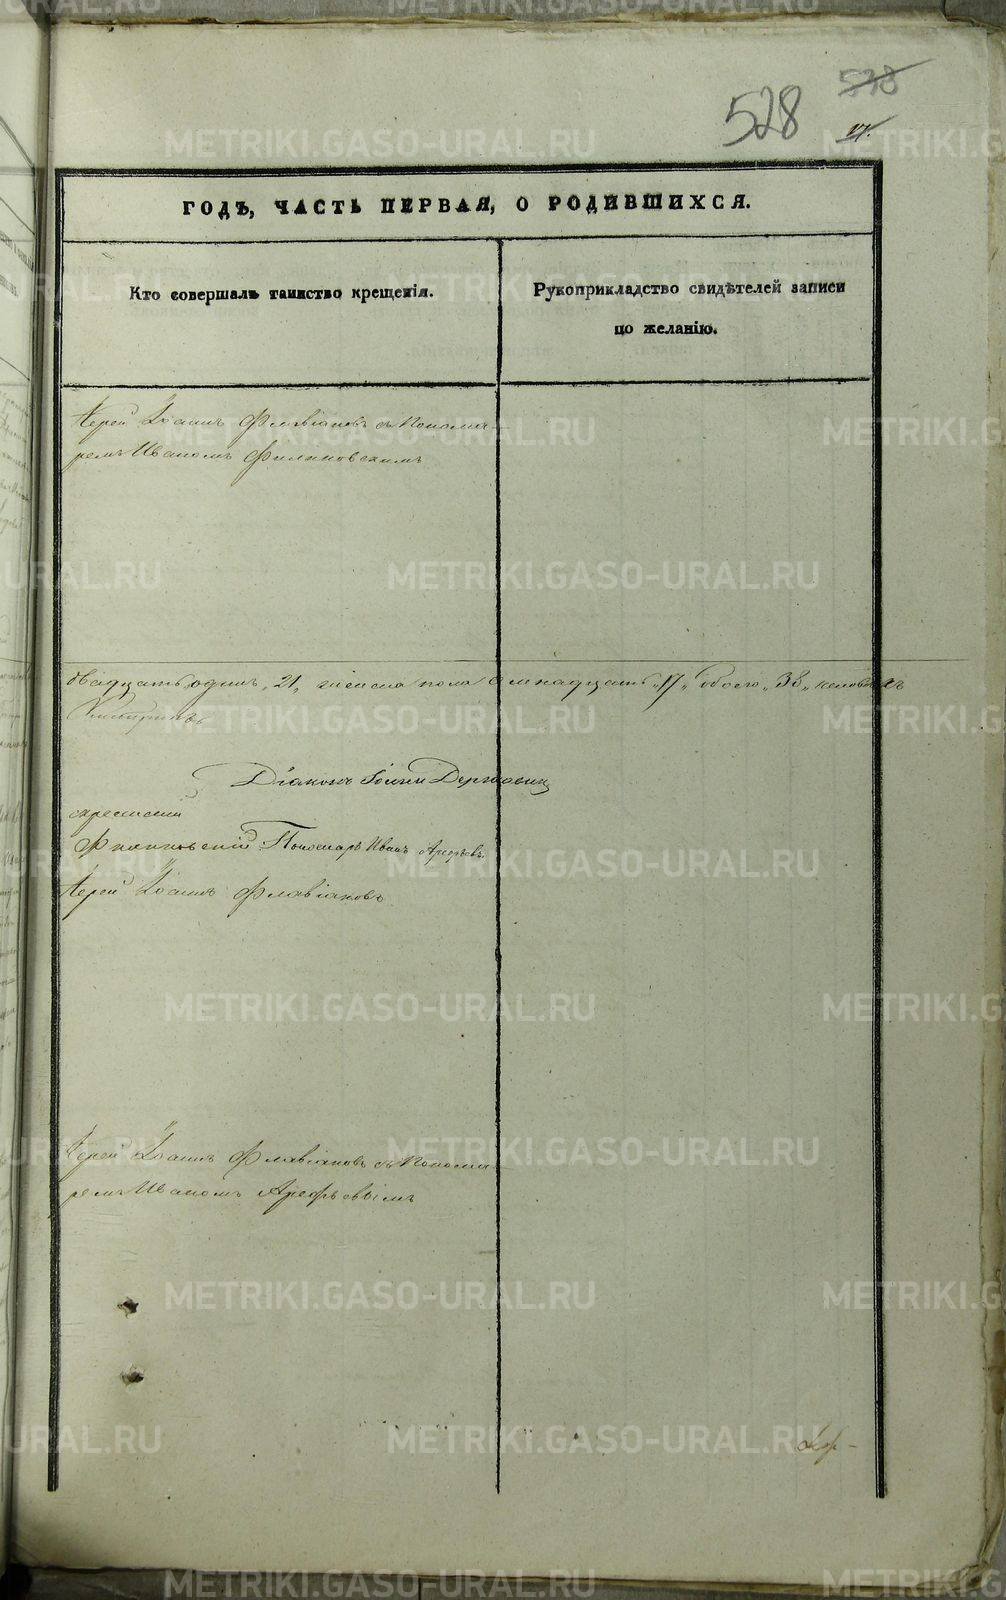 528 578
17.
ГОДЪ, ЧАСТЬ ПЕРВАЯ, О РОДИВШИХСЯ.
Кто совершалъ таинство крещенія.
Рукоприкладство свидѣтелей записи
по желанію.
Іерей Іоаннъ Флавіановъ съ Понома-
ремъ Иваномъ Филиновскимъ
двадцать одинъ „21„ женска пола семнадцать „17„ обоего „38„ человѣкъ
Діаконъ Іоаннъ Державинъ
Пономарь Иванъ Арефьевъ
Іерей Іоаннъ Флавіановъ
Іерей Іоаннъ Флавіановъ съ Понома-
ремъ Иваномъ Арефьевымъ
METRIKI.GASO-URAL.RU